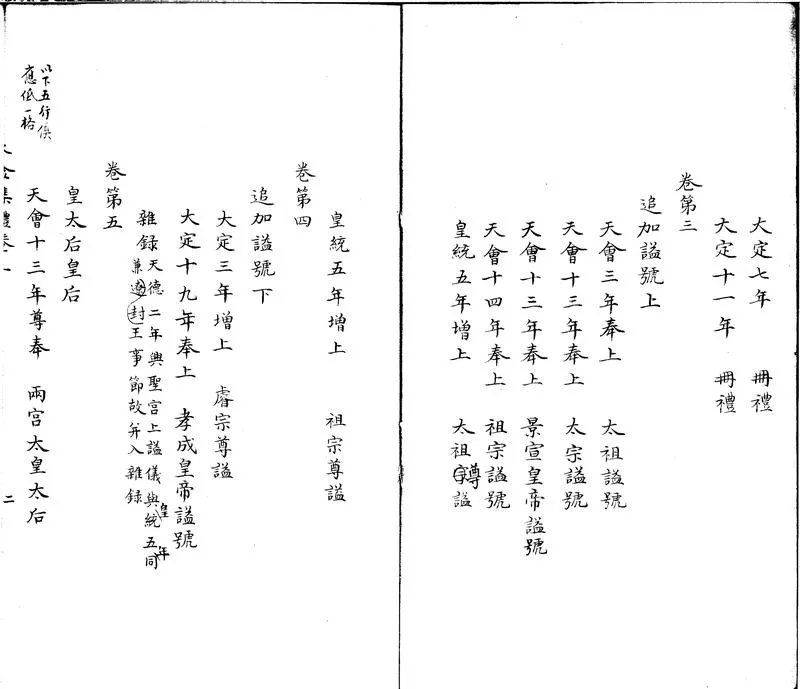 大定七年　冊禮
大定十一年　冊禮
卷第三
追加謚號上
天會三年奉上　太祖謚號
天會十三年奉上　太宗謚號
天會十三年奉上　景宣皇帝謚號
天會十四年奉上　祖宗謚號
皇統五年增上　太祖尊謚
皇統五年增上　祖宗尊謚
卷第四
追加謚號下
大定三年增上　睿宗尊謚
大定十九年奉上　孝成皇帝謚號
雜録天德二年興聖宮上謚儀與皇統五年同
兼追封王事節故并入雜録
卷第五
皇太后皇后
天會十三年尊奉　兩宮太皇太后
以下五行俱
應低一格
大金集禮卷一
二